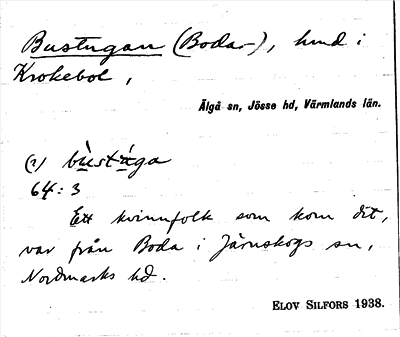 Bustugan (Bodar-), hmd i
Krokebol,
Älgå sn, Jösse hd, Värmlands län.
(?) bùstù̀ga
64:3
Ett kvinnfolk som kom dit,
var från Boda i Järnskogs sn,
Nordmarks hd.
ELOV SILFORS 1938.